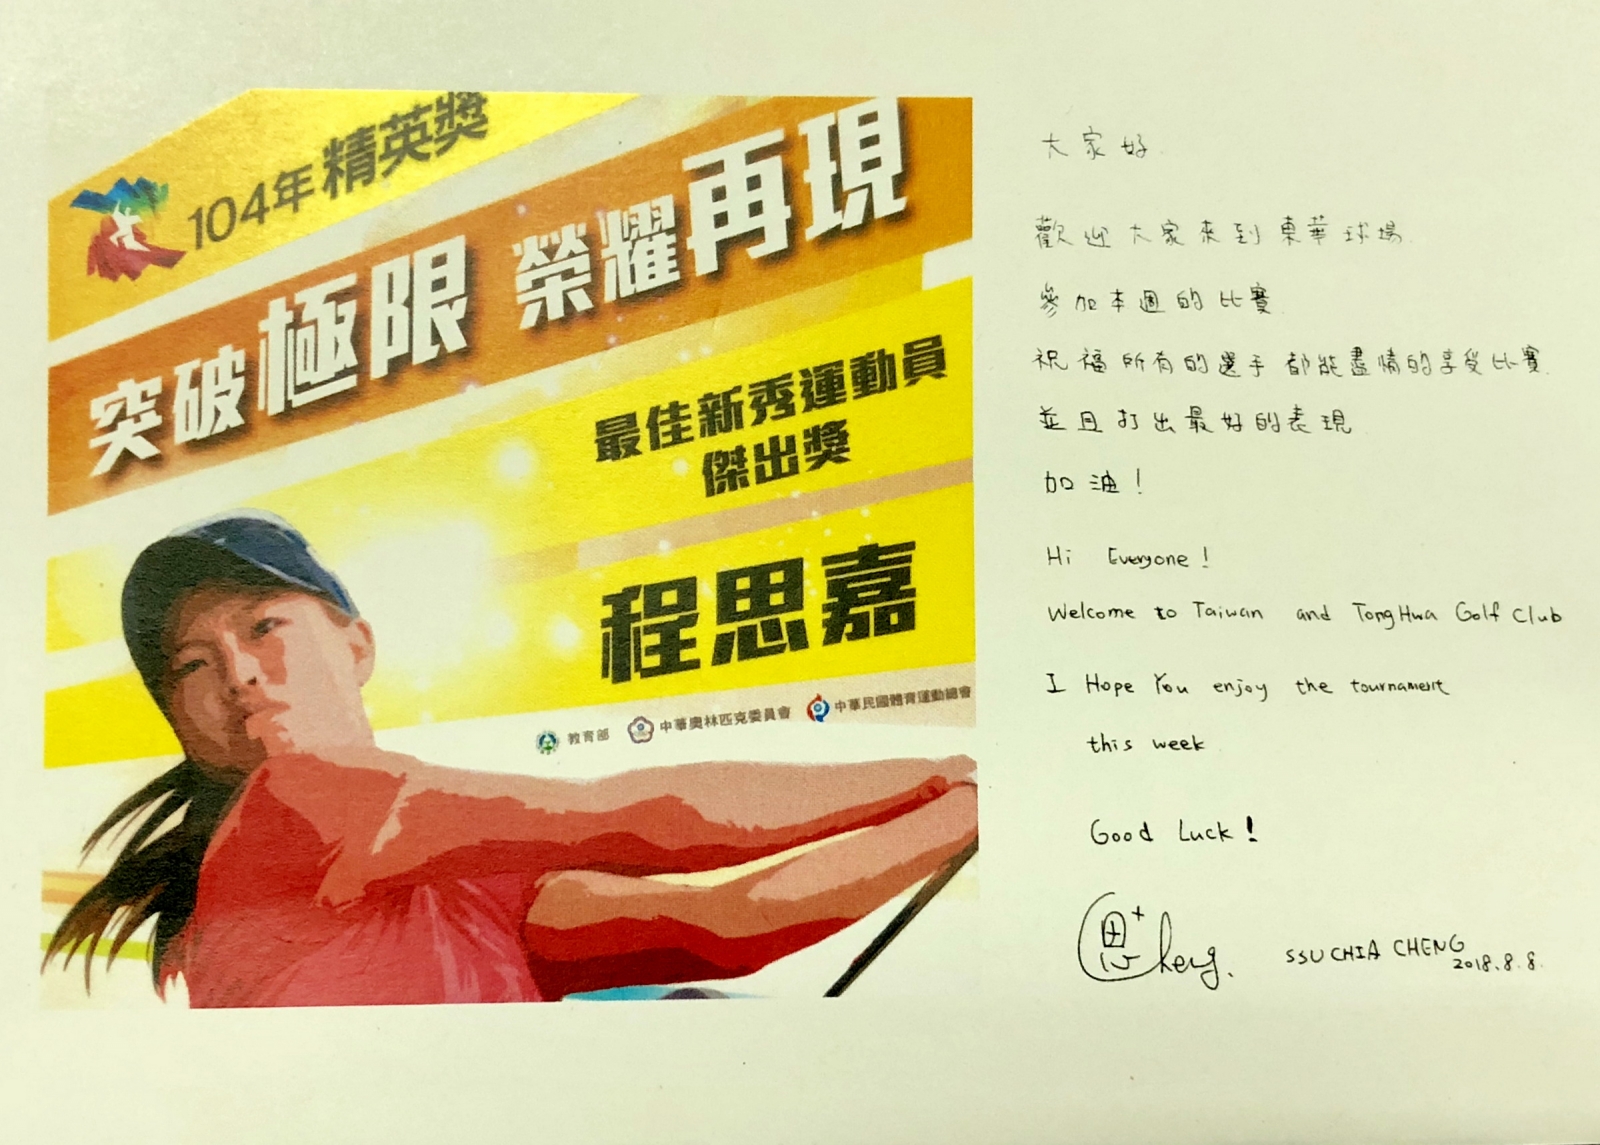 104年精英獎
突破極限 榮耀再現
最佳新秀運動員
傑出獎
程思嘉
教育部 中華奧林匹克委員會 中華民國體育運動總會
大家好
歡迎大家來到東華球場
參加本週的比賽
祝福所有的選手都能盡情的享受比賽
並且打出最好的表現
加油！
Hi Everyone!
Welcome to Taiwan and TongHwa Golf Club
I Hope You enjoy the tournament
this week
Good Luck!
思 Cheng.
SSU CHIA CHENG
2018.8.8.